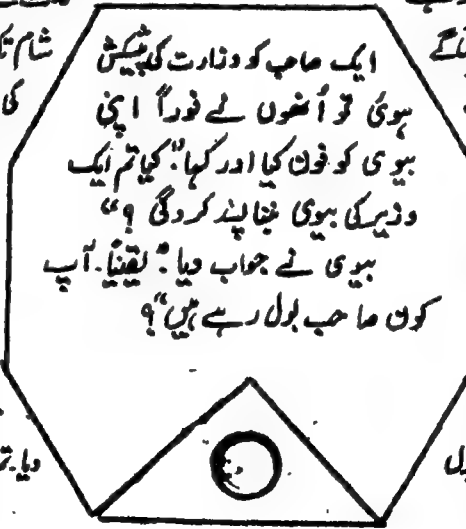 ایک صاحب کو وزارت کی پیشکش
ہوئی تو اُنھوں نے فوراً اپنی
بیوی کو فون کیا اور کہا: "کیا تم ایک
وزیر کی بیوی بننا پسند کروگی ؟"
بیوی نے جواب دیا: "یقیناً. آپ
کون صاحب بول رہے ہیں"؟
شام
کی
دیا.